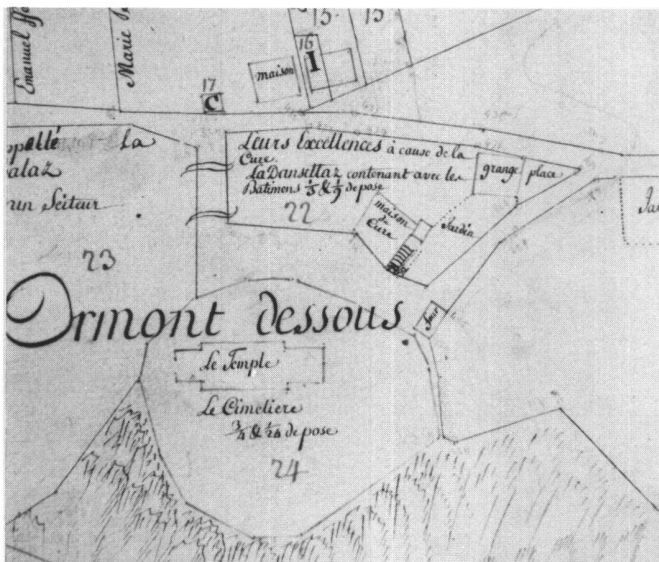 15
15
Emanuel
Marie
maison
16
I
17
C
la
un Seiteur
23
Leurs Excellences à cause de la
Cure
La Dansettaz contenant avec les
Bâtimens 1/3 & 1/9 de pose
22
grange
place
maison
de
Cure
Jardin
Ormont dessous
four
Le Temple
Le Cimetiere
3/4 & 1/24 de pose
24